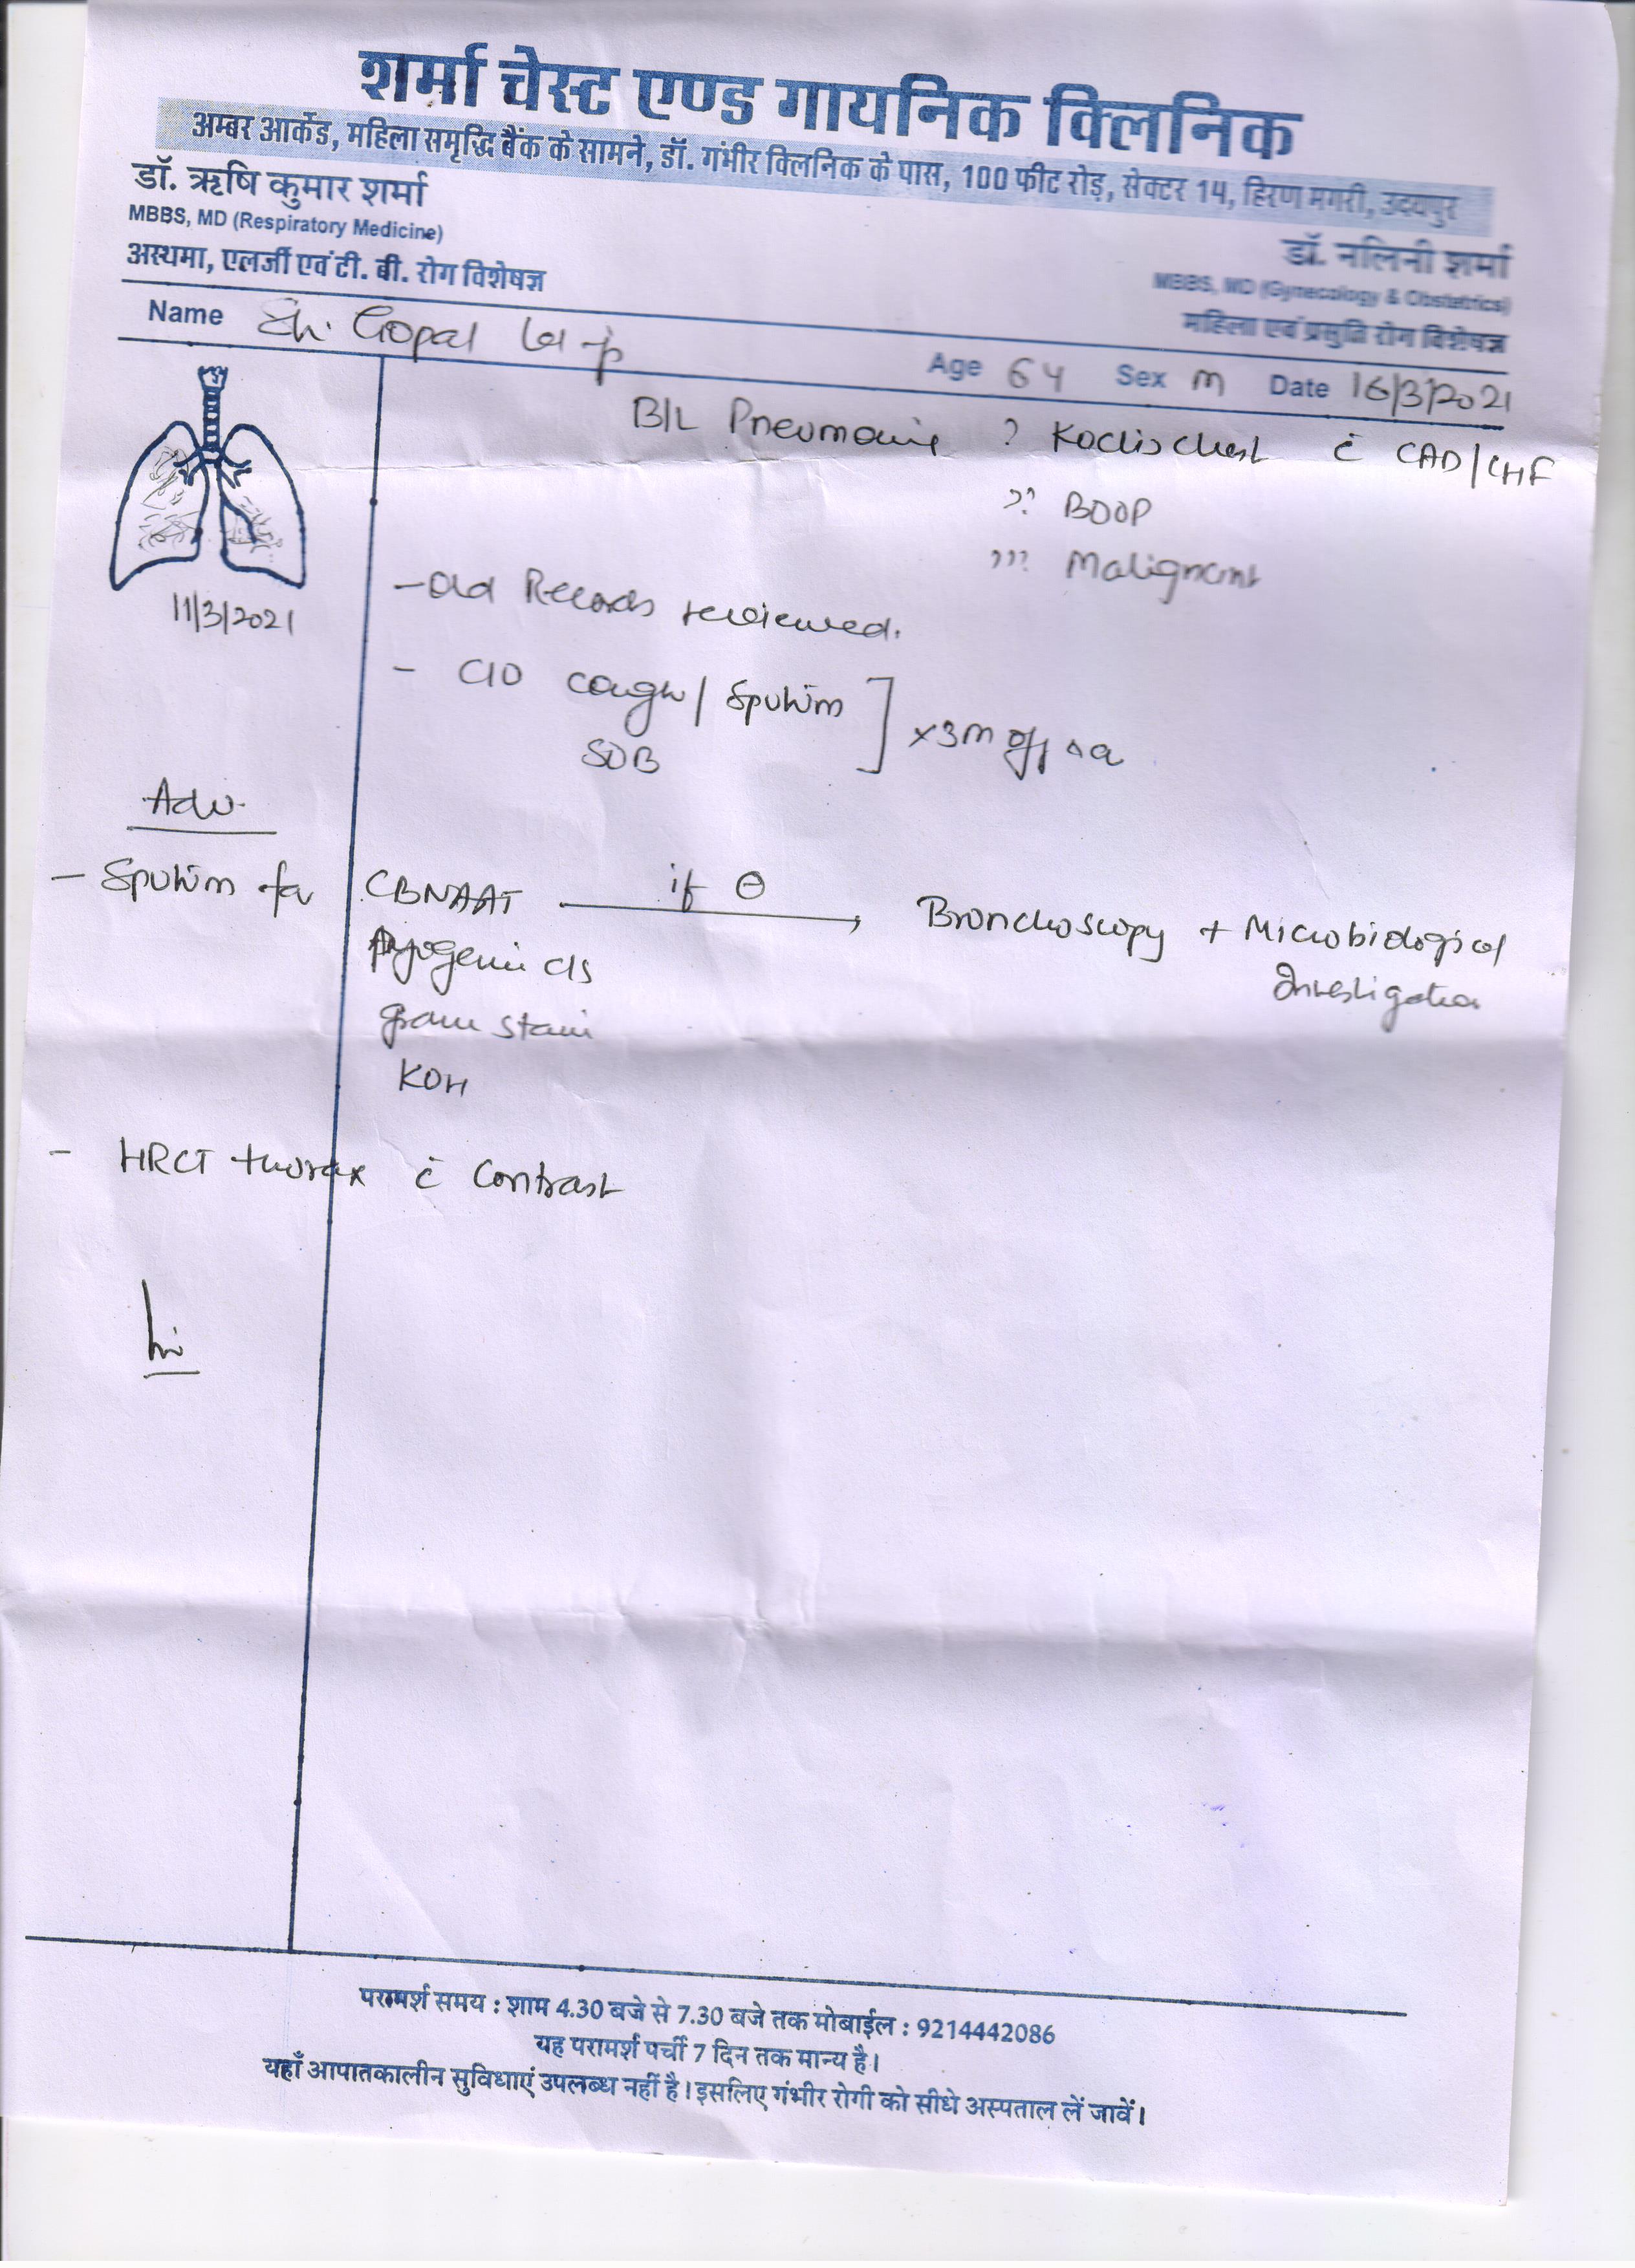 शर्मा चेस्ट एण्ड गायनिक क्लिनिक
अम्बर आर्केड, महिला समृद्धि बैंक के सामने, डॉ. गंभीर क्लिनिक के पास, 100 फीट रोड़, सेक्टर 14, हिरण मगरी, उदयपुर
डॉ. ऋषि कुमार शर्मा
MBBS, MD (Respiratory Medicine)
अस्थमा, एलर्जी एवं टी. बी. रोग विशेषज्ञ
डॉ. नलिनी शर्मा
MBBS, MD (Gynecology & Obstetrics)
महिला एवं प्रसुति रोग विशेषज्ञ
Name Sh. Gopal Age 64 Sex M Date 16/3/2021
B/L Pneumonia ? Koch's chest c̄ CAD/CHF
?? BOOP
??? Malignant
11/3/2021
- Old Records reviewed.
- C/O cough / Sputum
SOB ] x3m
Adv.
- Sputum for CBNAAT if ⊖ → Bronchoscopy + Microbiological Investigation
Pyogenic c/s
gram stain
KOH
- HRCT thorax c̄ Contrast
परामर्श समय : शाम 4.30 बजे से 7.30 बजे तक मोबाईल : 9214442086
यह परामर्श पर्ची 7 दिन तक मान्य है।
यहाँ आपातकालीन सुविधाएं उपलब्ध नहीं है। इसलिए गंभीर रोगी को सीधे अस्पताल लें जावें।